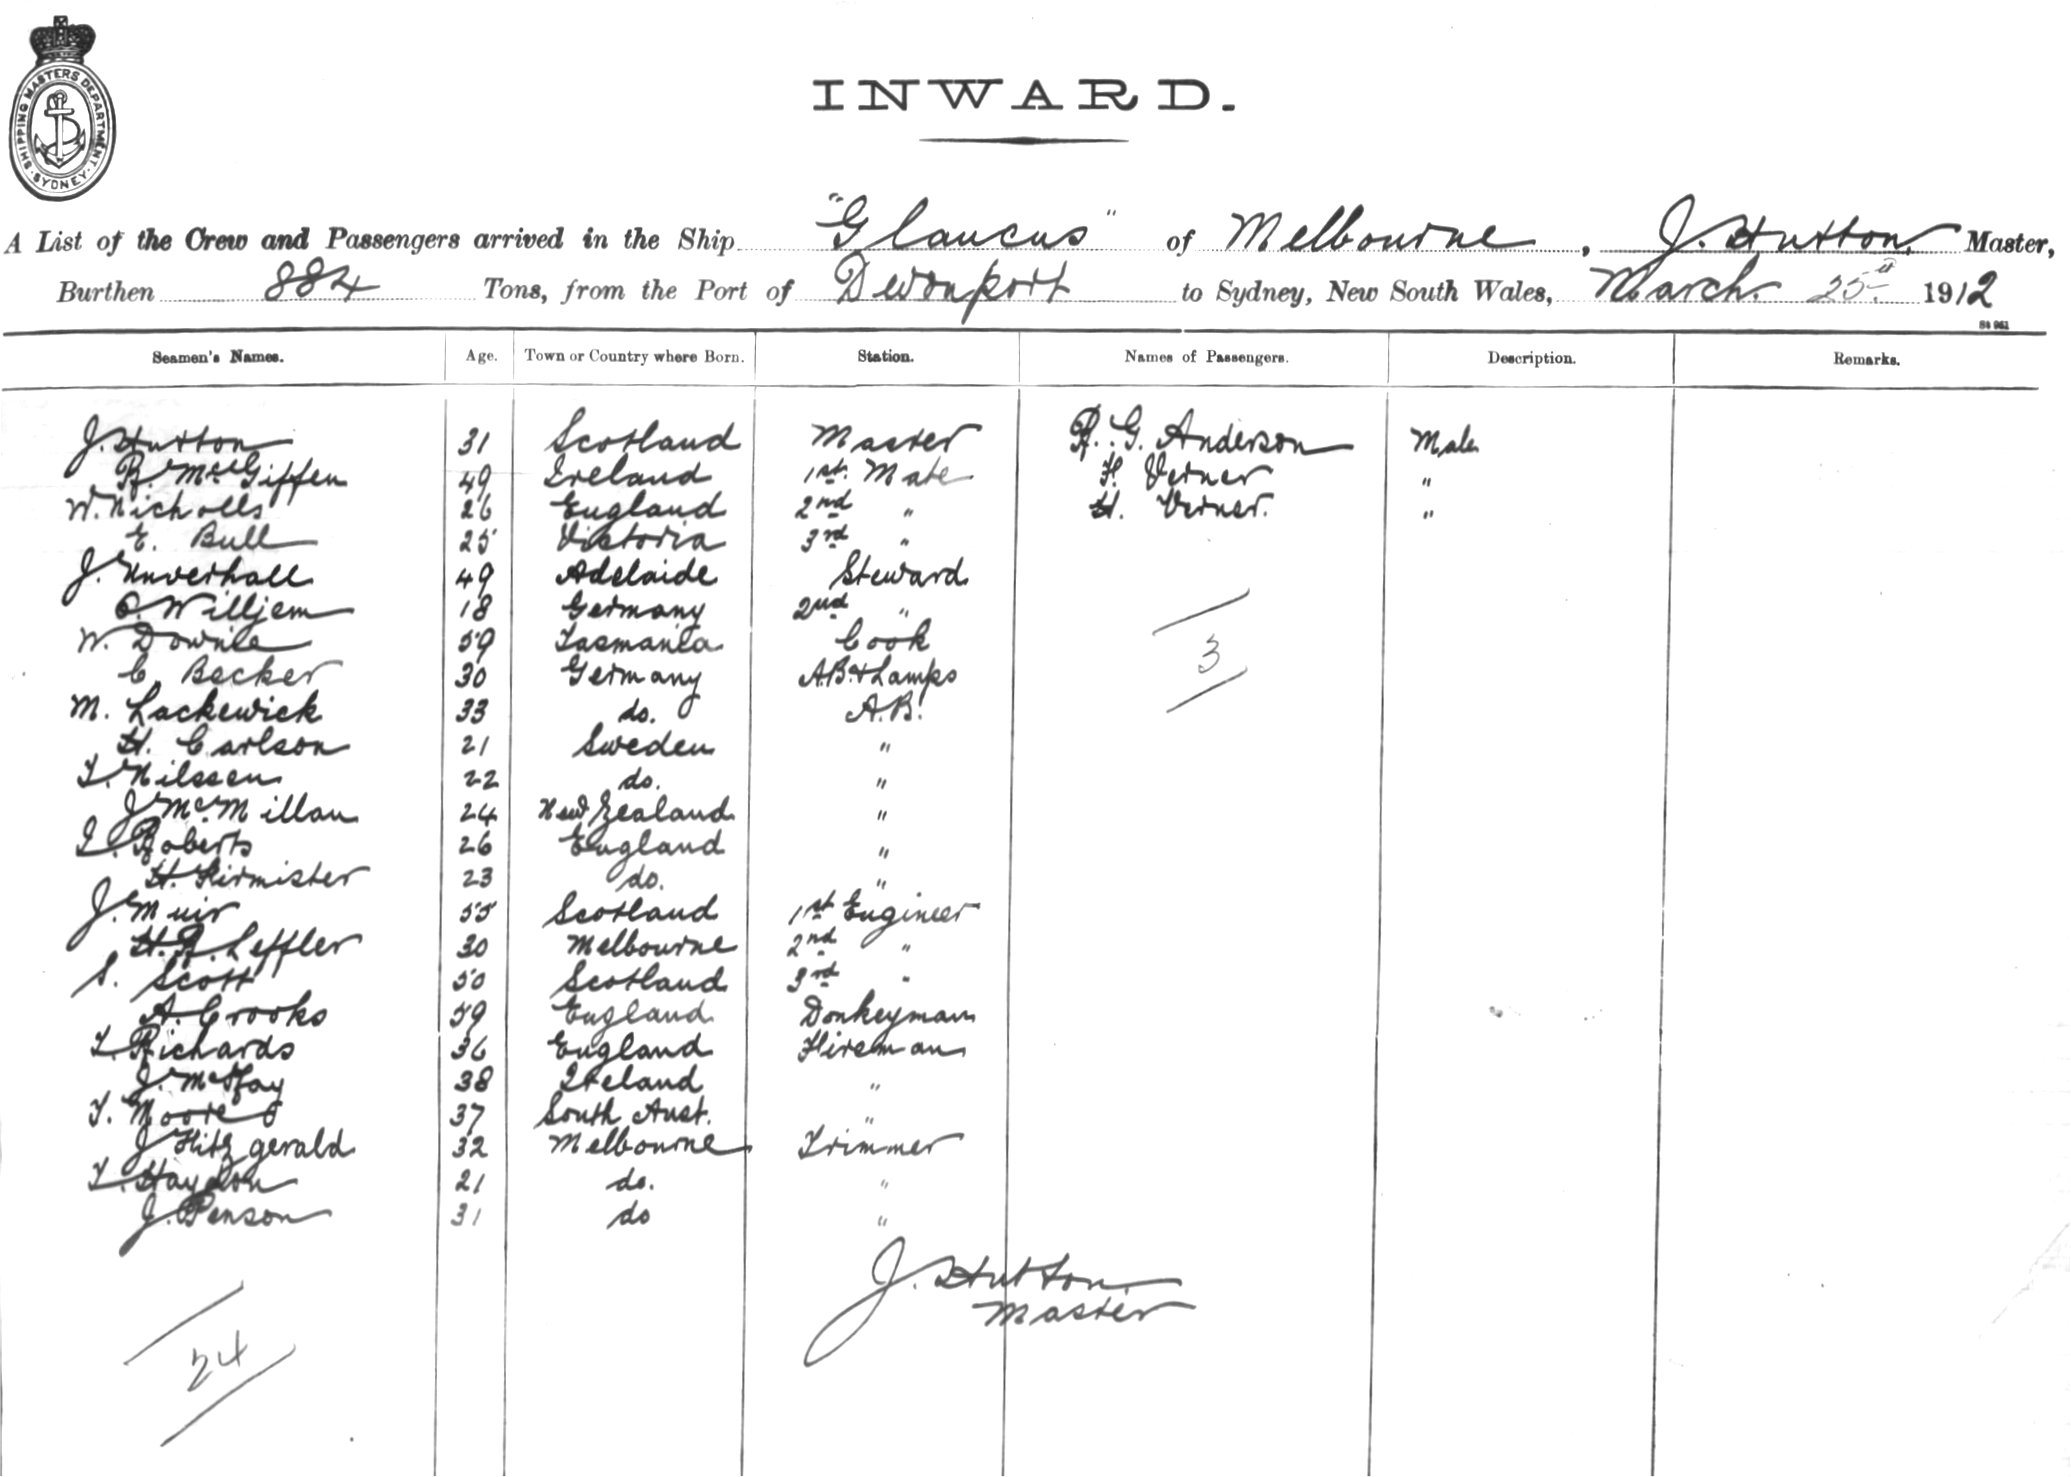 SHIPPING MASTERS DEPARTMENT. SYDNEY.
INWARD.
A List of the Crew and Passengers arrived in the Ship "Glaucus" of Melbourne, J. Hutton, Master,
Burthen 884 Tons, from the Port of Devonport to Sydney, New South Wales, March 25th 1912
Seamen's Names. Age. Town or Country where Born. Station. Names of Passengers. Description. Remarks.
J. Hutton 31 Scotland Master R. G. Anderson Male
R. McGiffen 49 Ireland 1st Mate F. Verner "
W. Nicholls 26 England 2nd " H. Verner. "
E. Bull 25 Victoria 3rd "
J. Unverhall 49 Adelaide Steward
O. Willjem 18 Germany 2nd "
W. Downie 59 Tasmania Cook
C. Becker 30 Germany A.B. & Lamps
M. Lackewick 33 do. A.B.
H. Carlson 21 Sweden "
T. Nilssen 22 do. "
J. McMillan 24 New Zealand "
I. Roberts 26 England "
H. Kirmister 23 do. "
J. Muir 55 Scotland 1st Engineer
H. R. Leffler 30 Melbourne 2nd "
S. Scott 50 Scotland 3rd "
A. Crooks 59 England Donkeyman
T. Richards 36 England Fireman
J. McKay 38 Ireland "
T. Moore 37 South Aust. "
J. Fitzgerald 32 Melbourne Trimmer
T. Haydon 21 do. "
J. Penson 31 do "
3
J. Hutton
Master
24